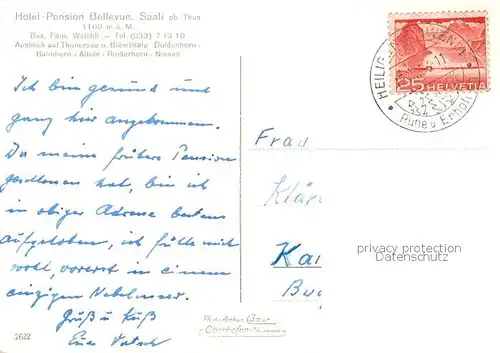 Hotel-Pension Bellevue, Saali ob Thun
1140 m.ü.M.
Bes. Fam. Wälchli — Tel. (033) 7 13 10
Ausblick auf Thunersee u. Blümlisalp Doldenhorn-
Balmhorn - Altels - Rinderhorn - Niesen
Ich bin gesund und
ganz hier angekommen.
Da meine frühere Pension
geschlossen hat, bin ich
in obiger Adresse bestens
aufgehoben, ich fühle mich
wohl, vorerst in einem
einzigen Nebelmeer.
Gruß u Kuß
2622
HELVETIA
25
HEILIG
Ruhe u Erholung
Frau
Klä
Ka
privacy protection
Datenschutz
Photo Arthur Baur
Oberhofen